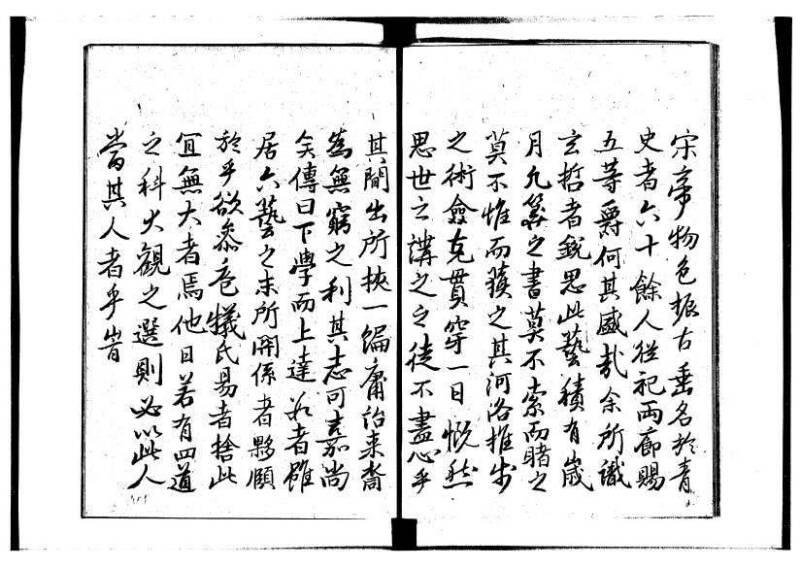 宋帝物色振古垂名於青
史者六十餘人從祀両廊賜
五等爵何其盛哉余所識
玄哲者鋭思此藝積有歳
月凡筭之書莫不索而睹之
莫不惟而賾之其河洛推歩
之術僉克貫穿一日慨然
思世之講之之徒不盡心乎
其間出所挾一編庸詒来裔
為無窮之利其志可嘉尚
矣傳曰下學而上達於者雖
居六藝之末所関係者夥願
於乎欲叅庖犧氏易者捨此
冝無大者焉他日若有四道
之科大觀之選則必以此人
當其人者乎旹